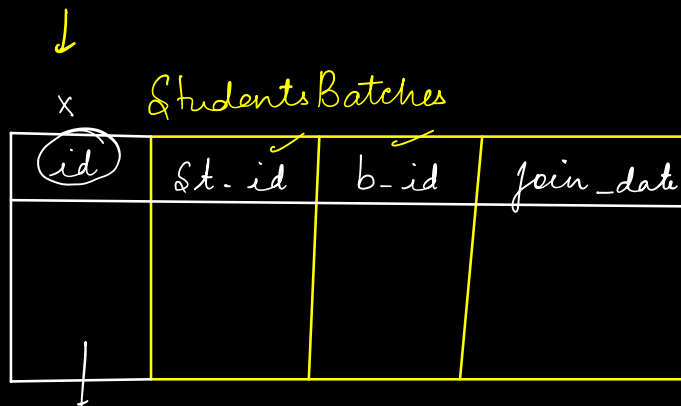 x
StudentsBatches
id St_id b_id join_date